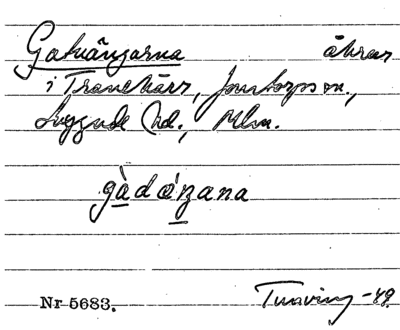 Gatuängarna åkrar
i Tranekärr, Jonstorps sn.,
Luggude hd., Mlm.
gàdáŋana
Nr 5683. -49.